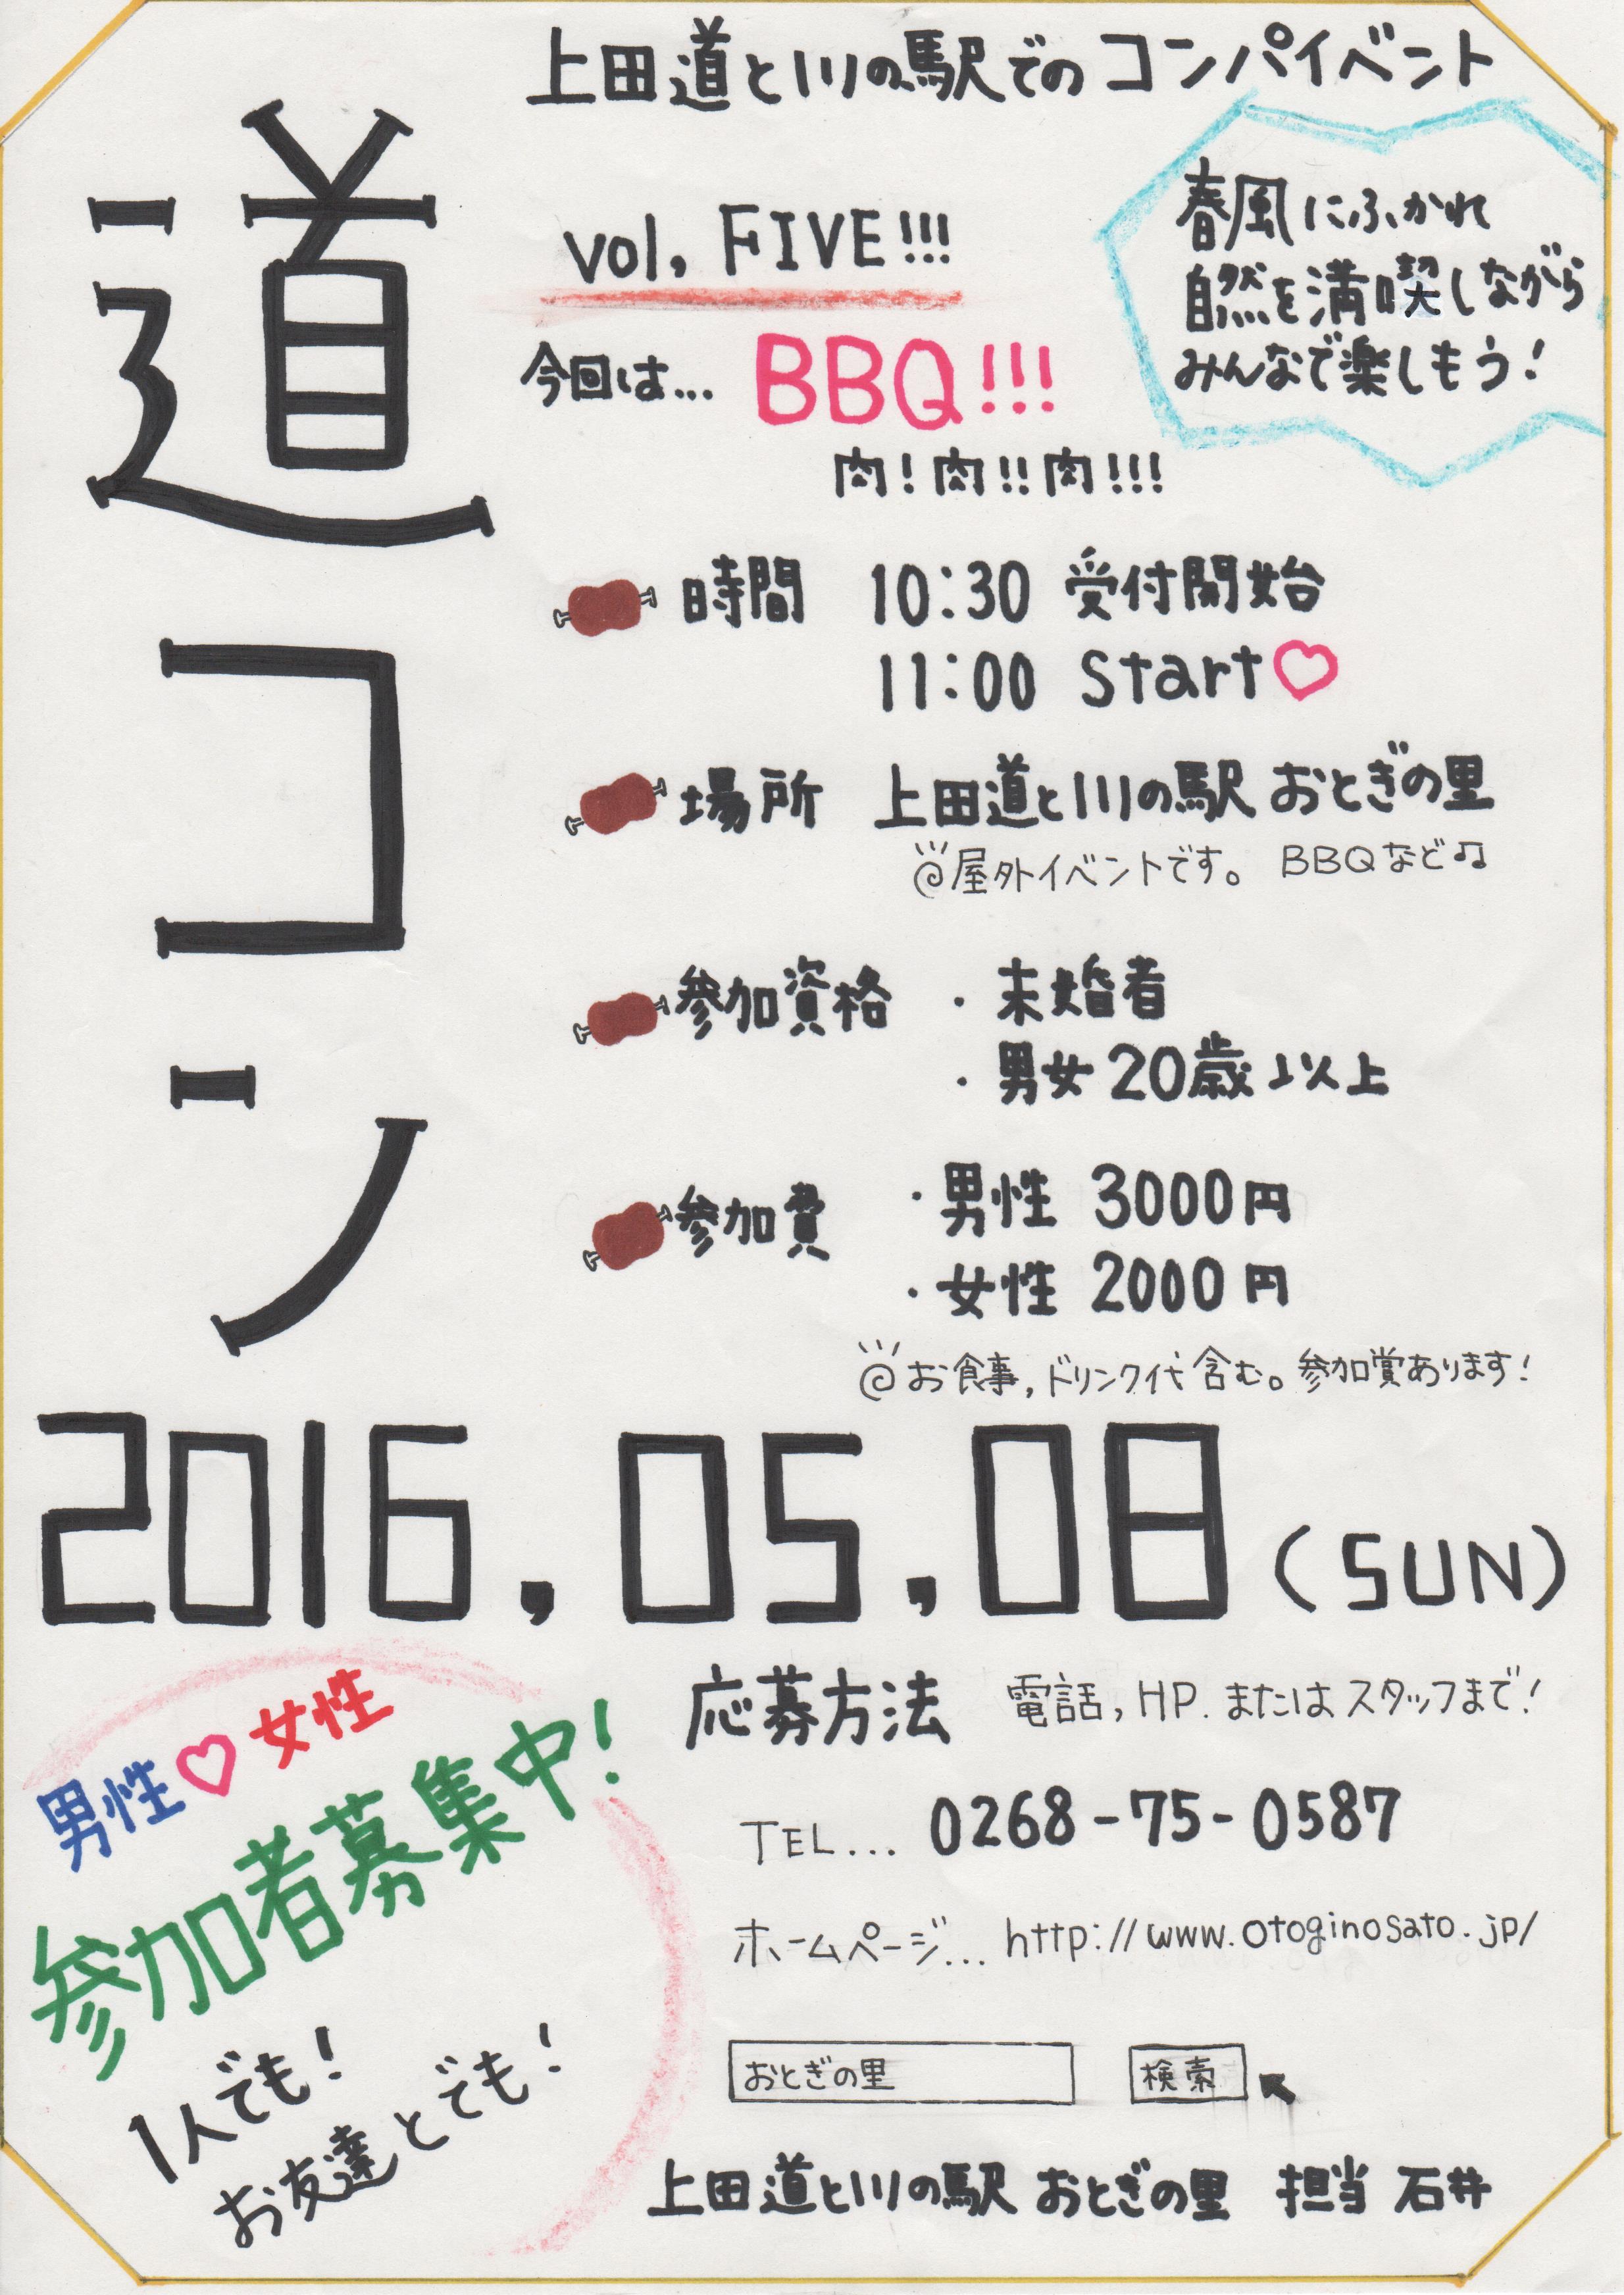 上田道と川の駅でのコンパイベント
道コン
vol, FIVE!!!
春風にふかれ
自然を満喫しながら
みんなで楽しもう!
今回は... BBQ!!!
肉!肉!!肉!!!
時間 10:30 受付開始
11:00 Start♡
場所 上田道と川の駅 おとぎの里
@屋外イベントです。 BBQなど♫
参加資格 ・未婚者
・男女20歳以上
参加費 ・男性 3000円
・女性 2000円
@お食事,ドリンク代含む。参加賞あります!
2016,05,08(SUN)
男性♡女性
参加者募集中!
1人でも!
お友達とでも!
応募方法 電話,HP.またはスタッフまで!
TEL... 0268-75-0587
ホームページ... http://www.otoginosato.jp/
おとぎの里 検索
上田道と川の駅 おとぎの里 担当 石井